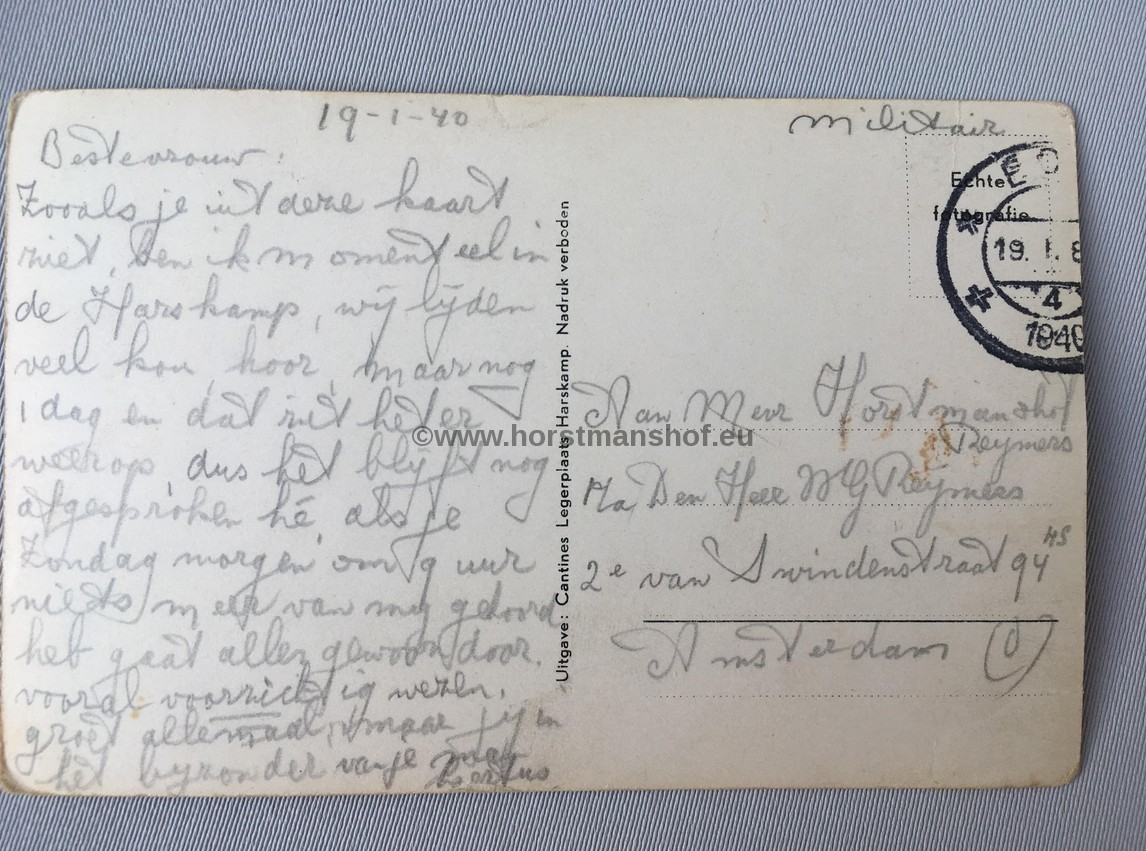 19-1-40
Beste vrouw:
Zooals je uit deze kaart
ziet, ben ik momenteel in
de Harskamp, wij lijden
veel kou, hoor, maar nog
1 dag en dat zit het er
weer op, dus het blijft nog
afgesproken hé, als je
Zondag morgen om 9 uur
niets meer van mij gehoord
heb gaat alles gewoon door.
vooral voorzichtig wezen.
groet allemaal, maar jij in
het byzonder van je man
Bertus
Uitgave: Cantines Legerplaats Harskamp. Nadruk verboden
Militair
Echte
fotografie
ED
19. I. 8
4
1940
Aan Mevr Horstmanshof
Reymers
P/a Den Heer W G Reymers
2e van Swindenstraat 94 HS
Amsterdam (O)
©www.horstmanshof.eu